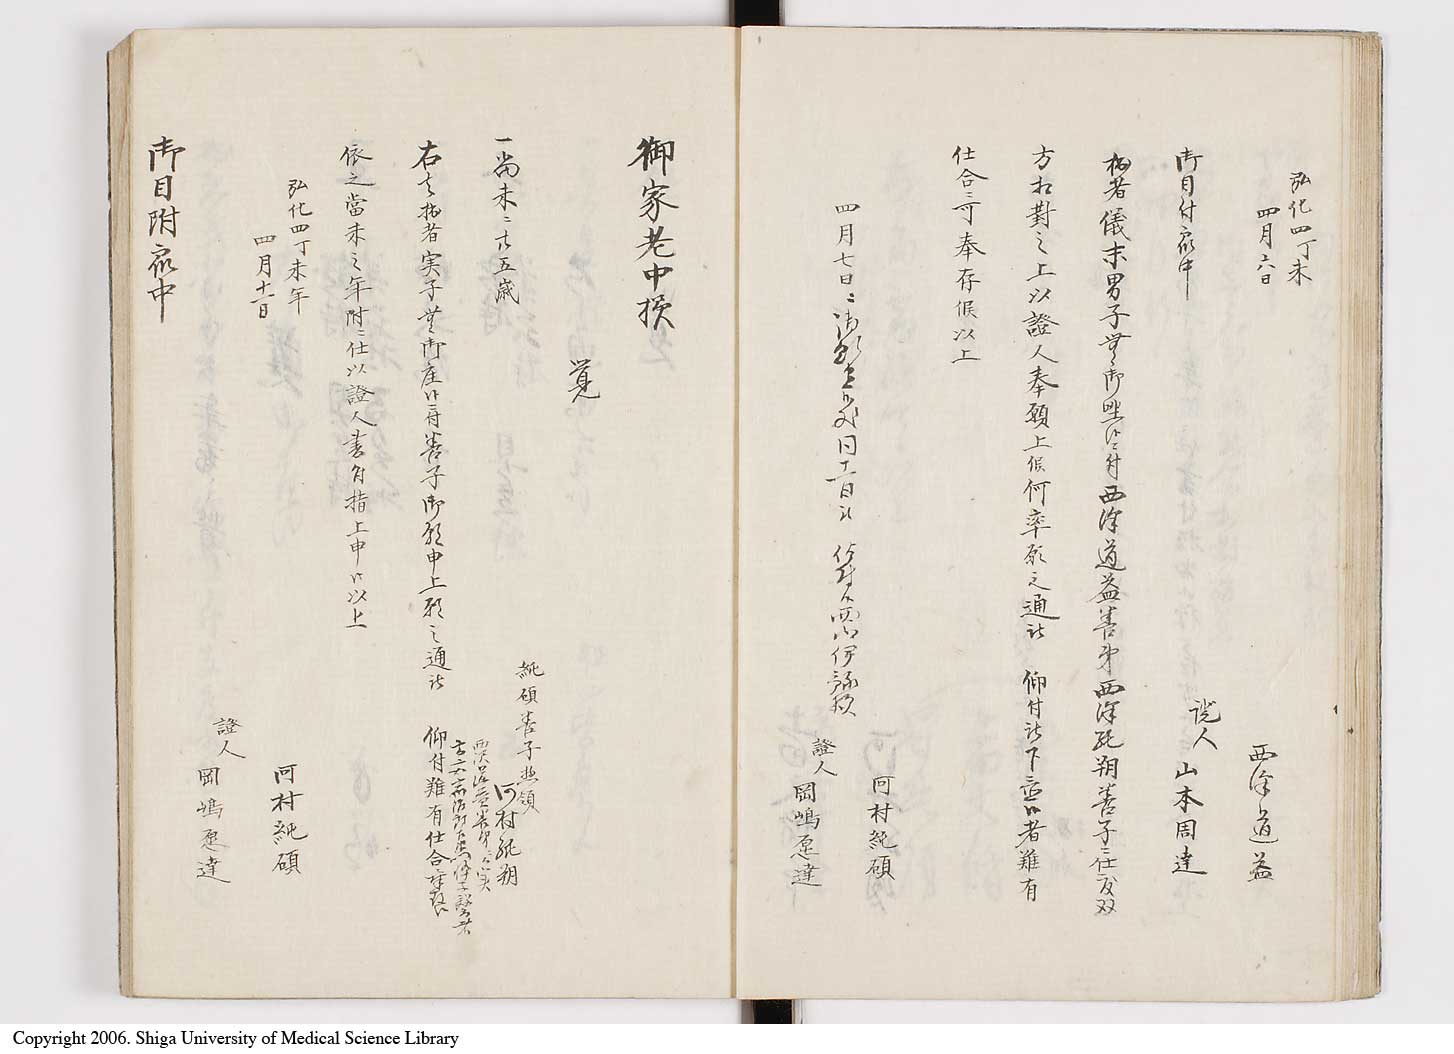 弘化四丁未
四月六日
西澤道益
證人 山本周達
御目付衆中
拙者儀末男子無御座候ニ付西澤道益養弟西澤純朔養子ニ仕度双
方相對之上以證人奉願上候何卒願之通被 仰付被下置候者難有
仕合ニ可奉存候以上
四月七日ニ 同十一日被
河村純碩
證人 岡嶋愿達
御家老中様
覚
一當未ニ廿五歳
純碩養子惣領
河村純朔
右之拙者実子無御座候ニ付養子御願申上願之通被 仰付難有仕合奉存候
依之當未之年附ニ仕以證人書付指上申候以上
弘化四丁未年
四月十一日
河村純碩
證人 岡嶋愿達
御目附衆中
Copyright 2006. Shiga University of Medical Science Library